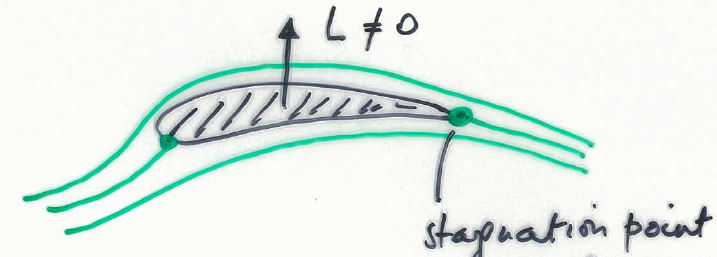 L ≠ 0
stagnation point